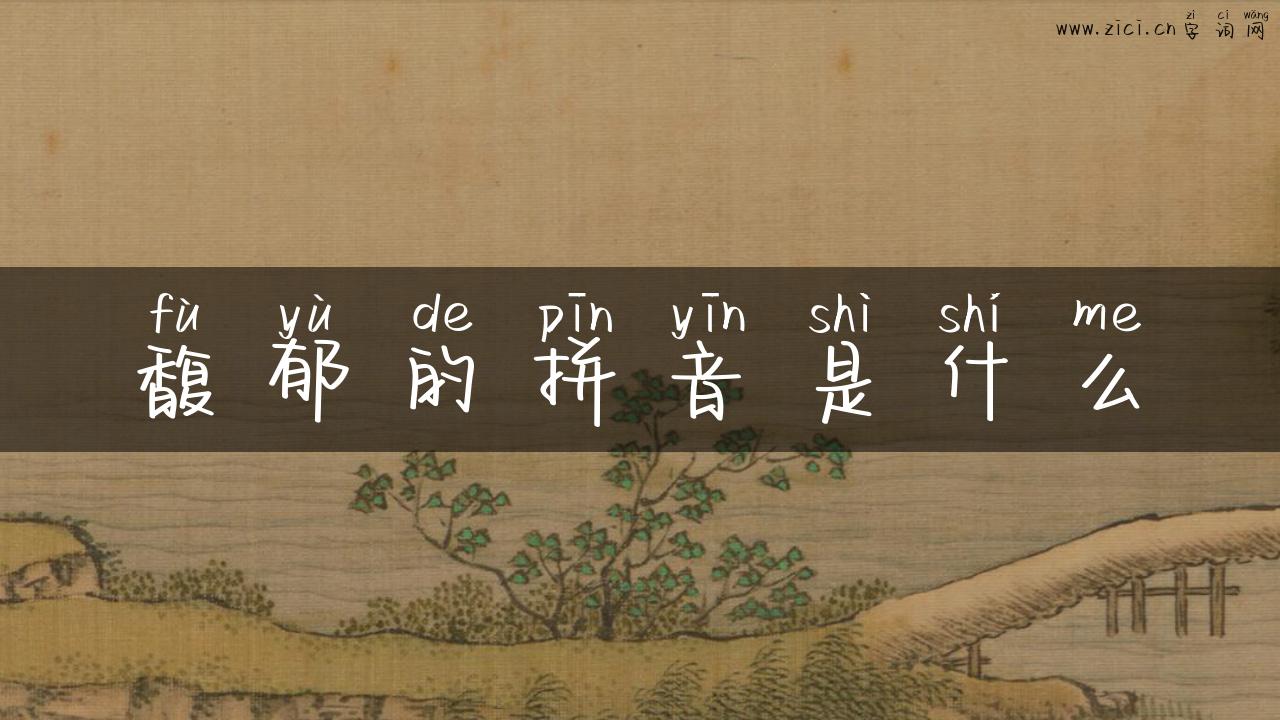 zì cí wǎng
www.zici.cn 字词网
fù yù de pīn yīn shì shí me
馥郁的拼音是什么